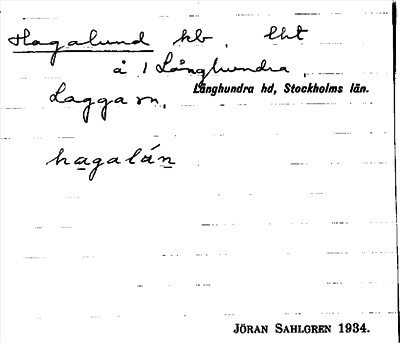 Hagalund kb, lht
å 1 Långhundra,
Lagga sn, Långhundra hd, Stockholms län.
hagalán
JÖRAN SAHLGREN 1934.